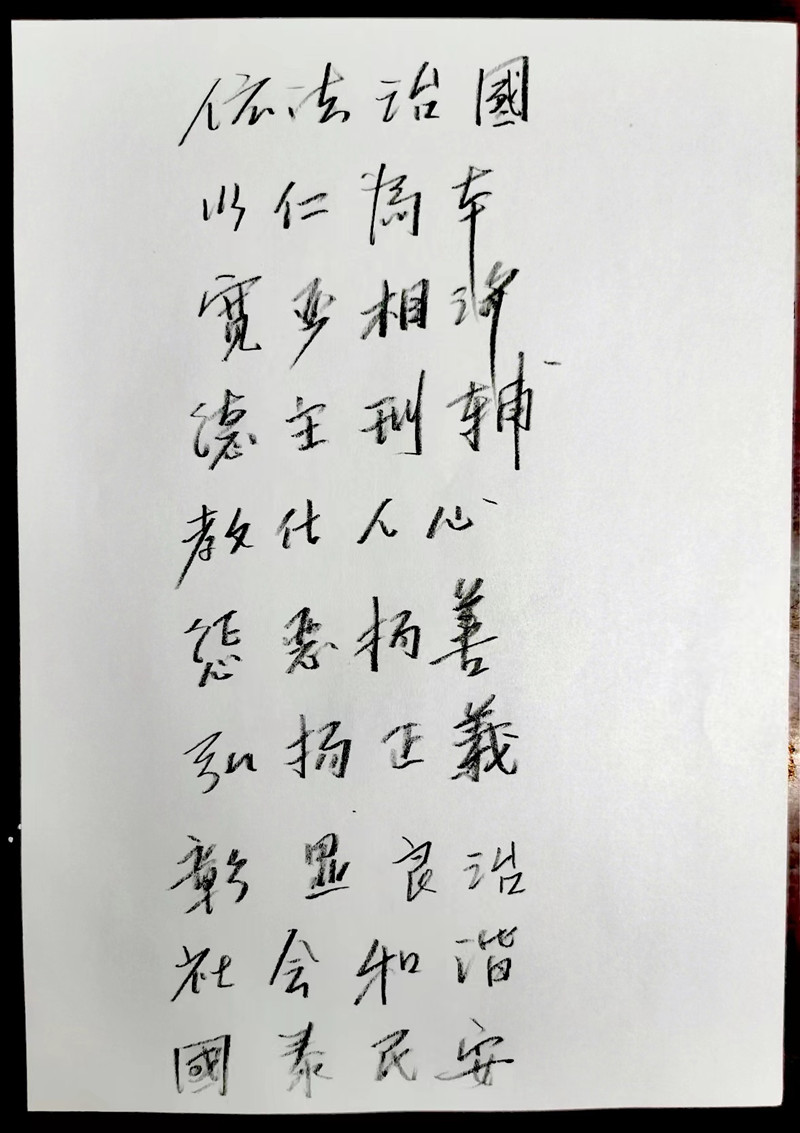 依法治國
以仁為本
寬嚴相濟
德主刑輔
教化人心
惩恶扬善
弘扬正義
彰显良治
社会和谐
國泰民安